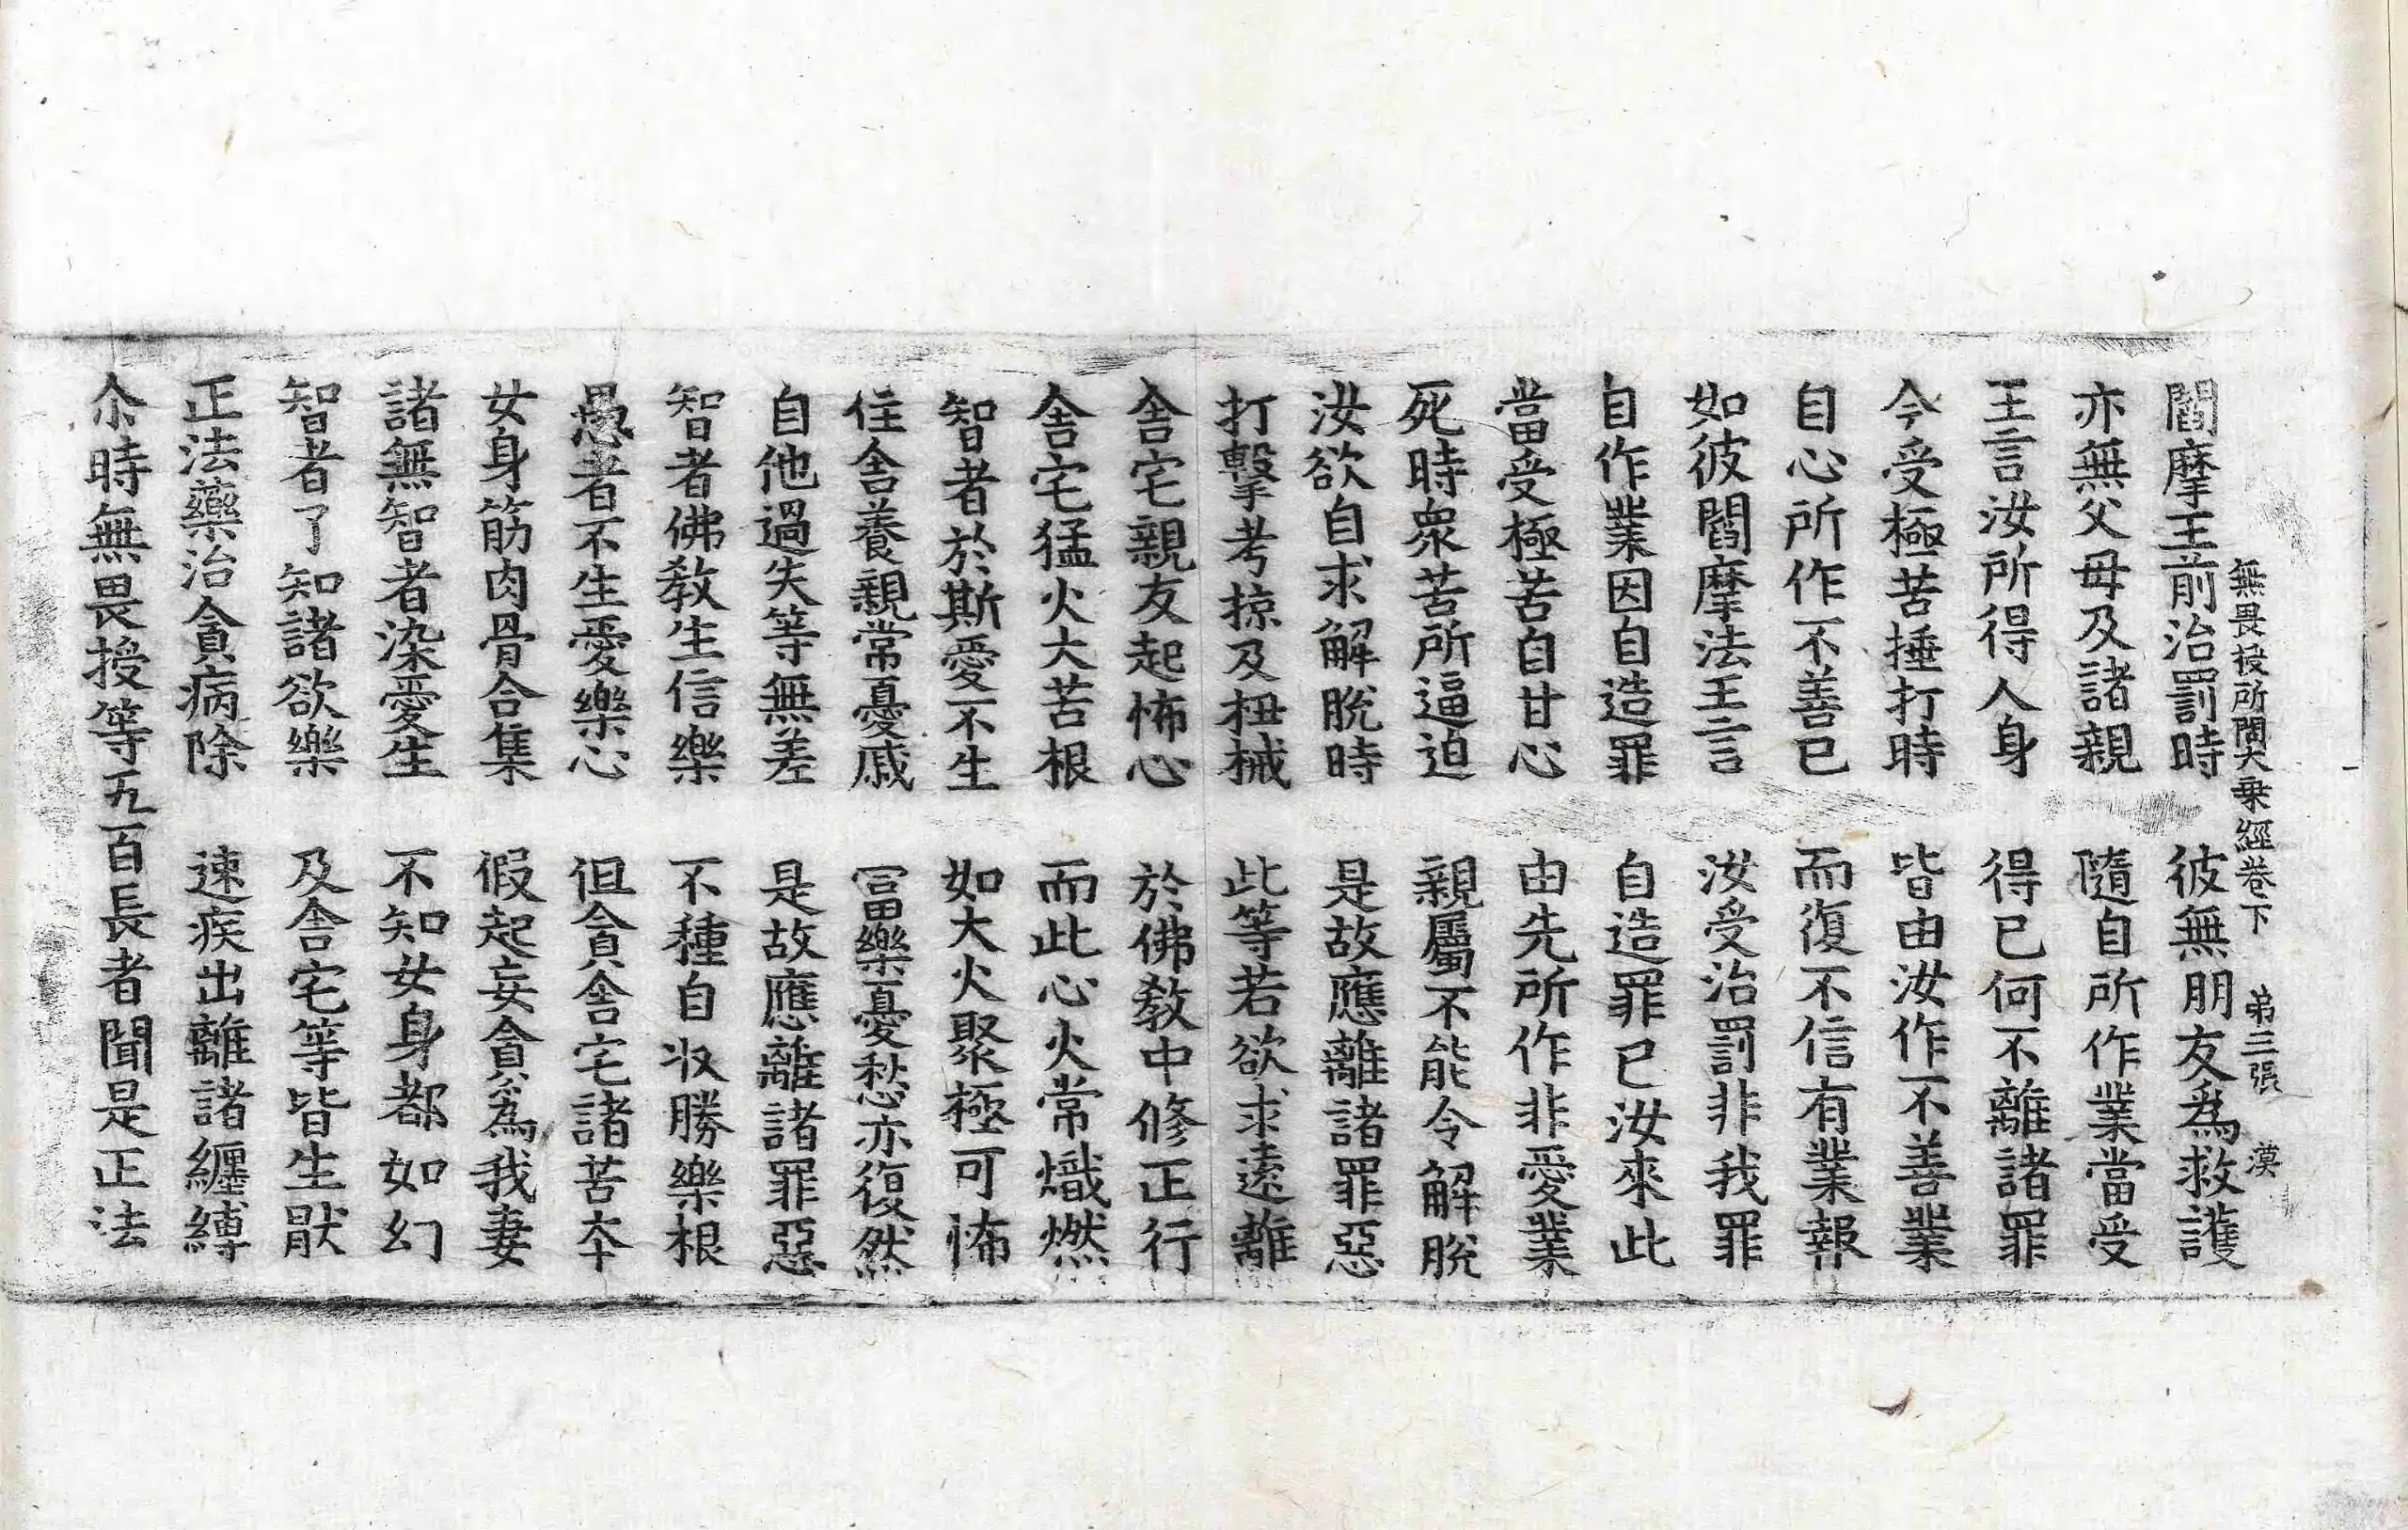 無畏授所問大乗經卷下 第三張 漠
閻摩王前治罰時 彼無朋友為救護
亦無父母及諸親 隨自所作業當受
王言汝所得人身 得已何不離諸罪
今受極苦捶打時 皆由汝作不善業
自心所作不善已 而復不信有業報
如彼閻摩法王言 汝受治罰非我罪
自作業因自造罪 自造罪已汝來此
當受極苦自甘心 由先所作非愛業
死時衆苦所逼迫 親屬不能令解脫
汝欲自求解脫時 是故應離諸罪惡
打擊考掠及杻械 此等若欲求遠離
舎宅親友起怖心 於佛教中修正行
舎宅猛火大苦根 而此心火常熾燃
智者於斯愛不生 如大火聚極可怖
住舎養親常憂戚 冨樂憂愁亦復然
自他過失等無差 是故應離諸罪惡
智者佛教生信樂 不種自収勝樂根
愚者不生愛樂心 但貪舎宅諸苦夲
女身筋肉骨合集 假起妄貪為我妻
諸無智者染愛生 不知女身都如幻
智者了知諸欲樂 及舎宅等皆生猒
正法藥治貪病除 速疾出離諸纒縛
尒時無畏授等五百長者聞是正法